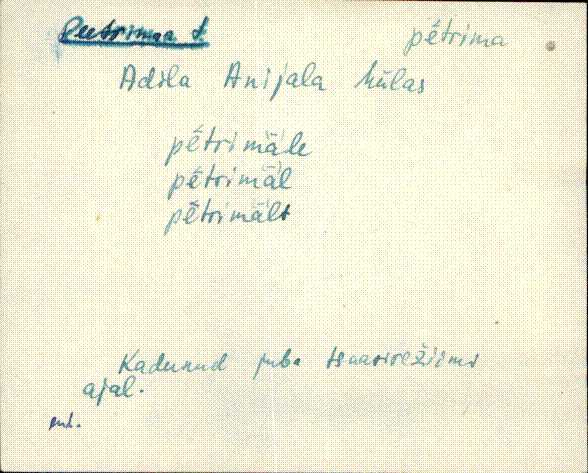 Peetrimaa t. pētrima
Adila Anijala külas
pētrimāle
pētrimāl
pētrimālt
Kadunud juba tsaarirežiimi
ajal.